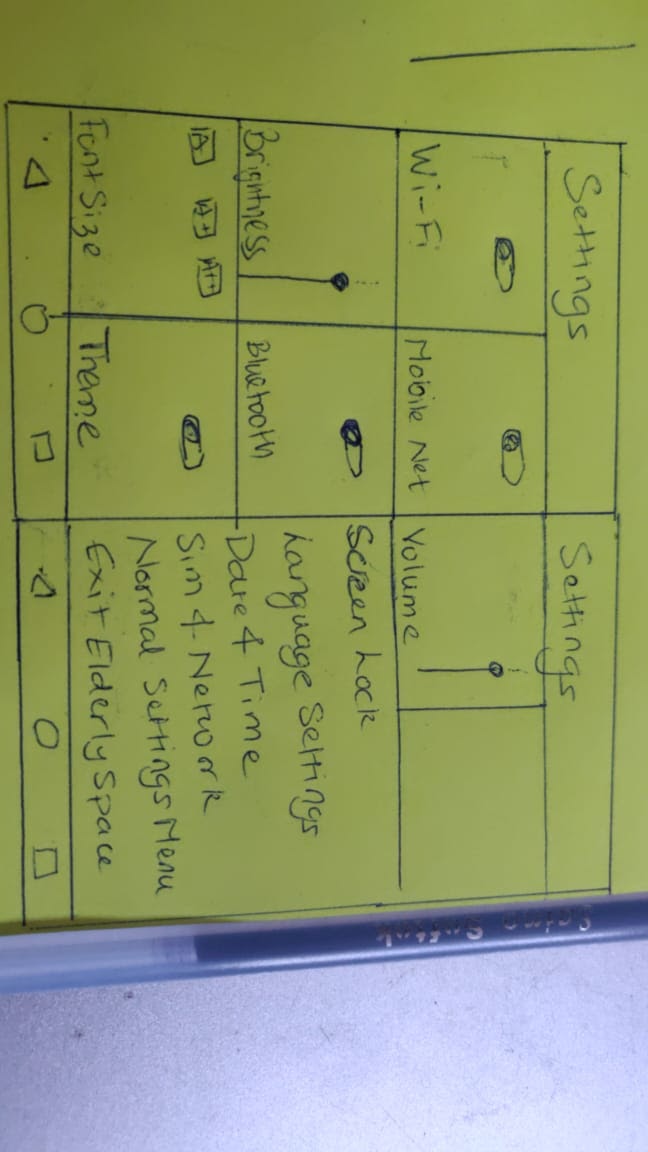 Settings
Wi-Fi
Mobile Net
Brightness
Bluetooth
A
A+
A++
Font Size
Theme
Settings
Volume
Screen Lock
Language Settings
Date & Time
Sim & Network
Normal Settings Menu
Exit Elderly Space